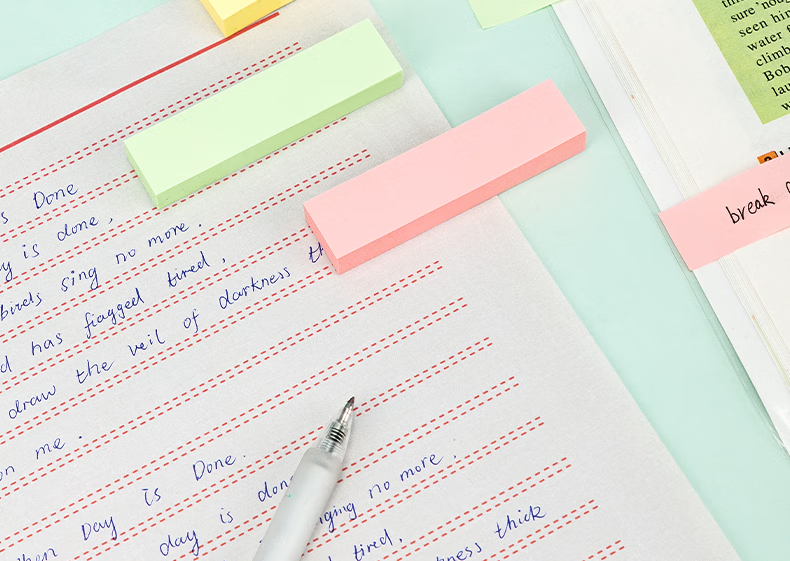 s Done
y is done,
birds sing no more.
d has flagged tired,
draw the veil of darkness th
on me.
When Day is Done.
day is done
nging no more.
tired,
kness thick
sure nou
seen him
water
climb
Bob
lau
break